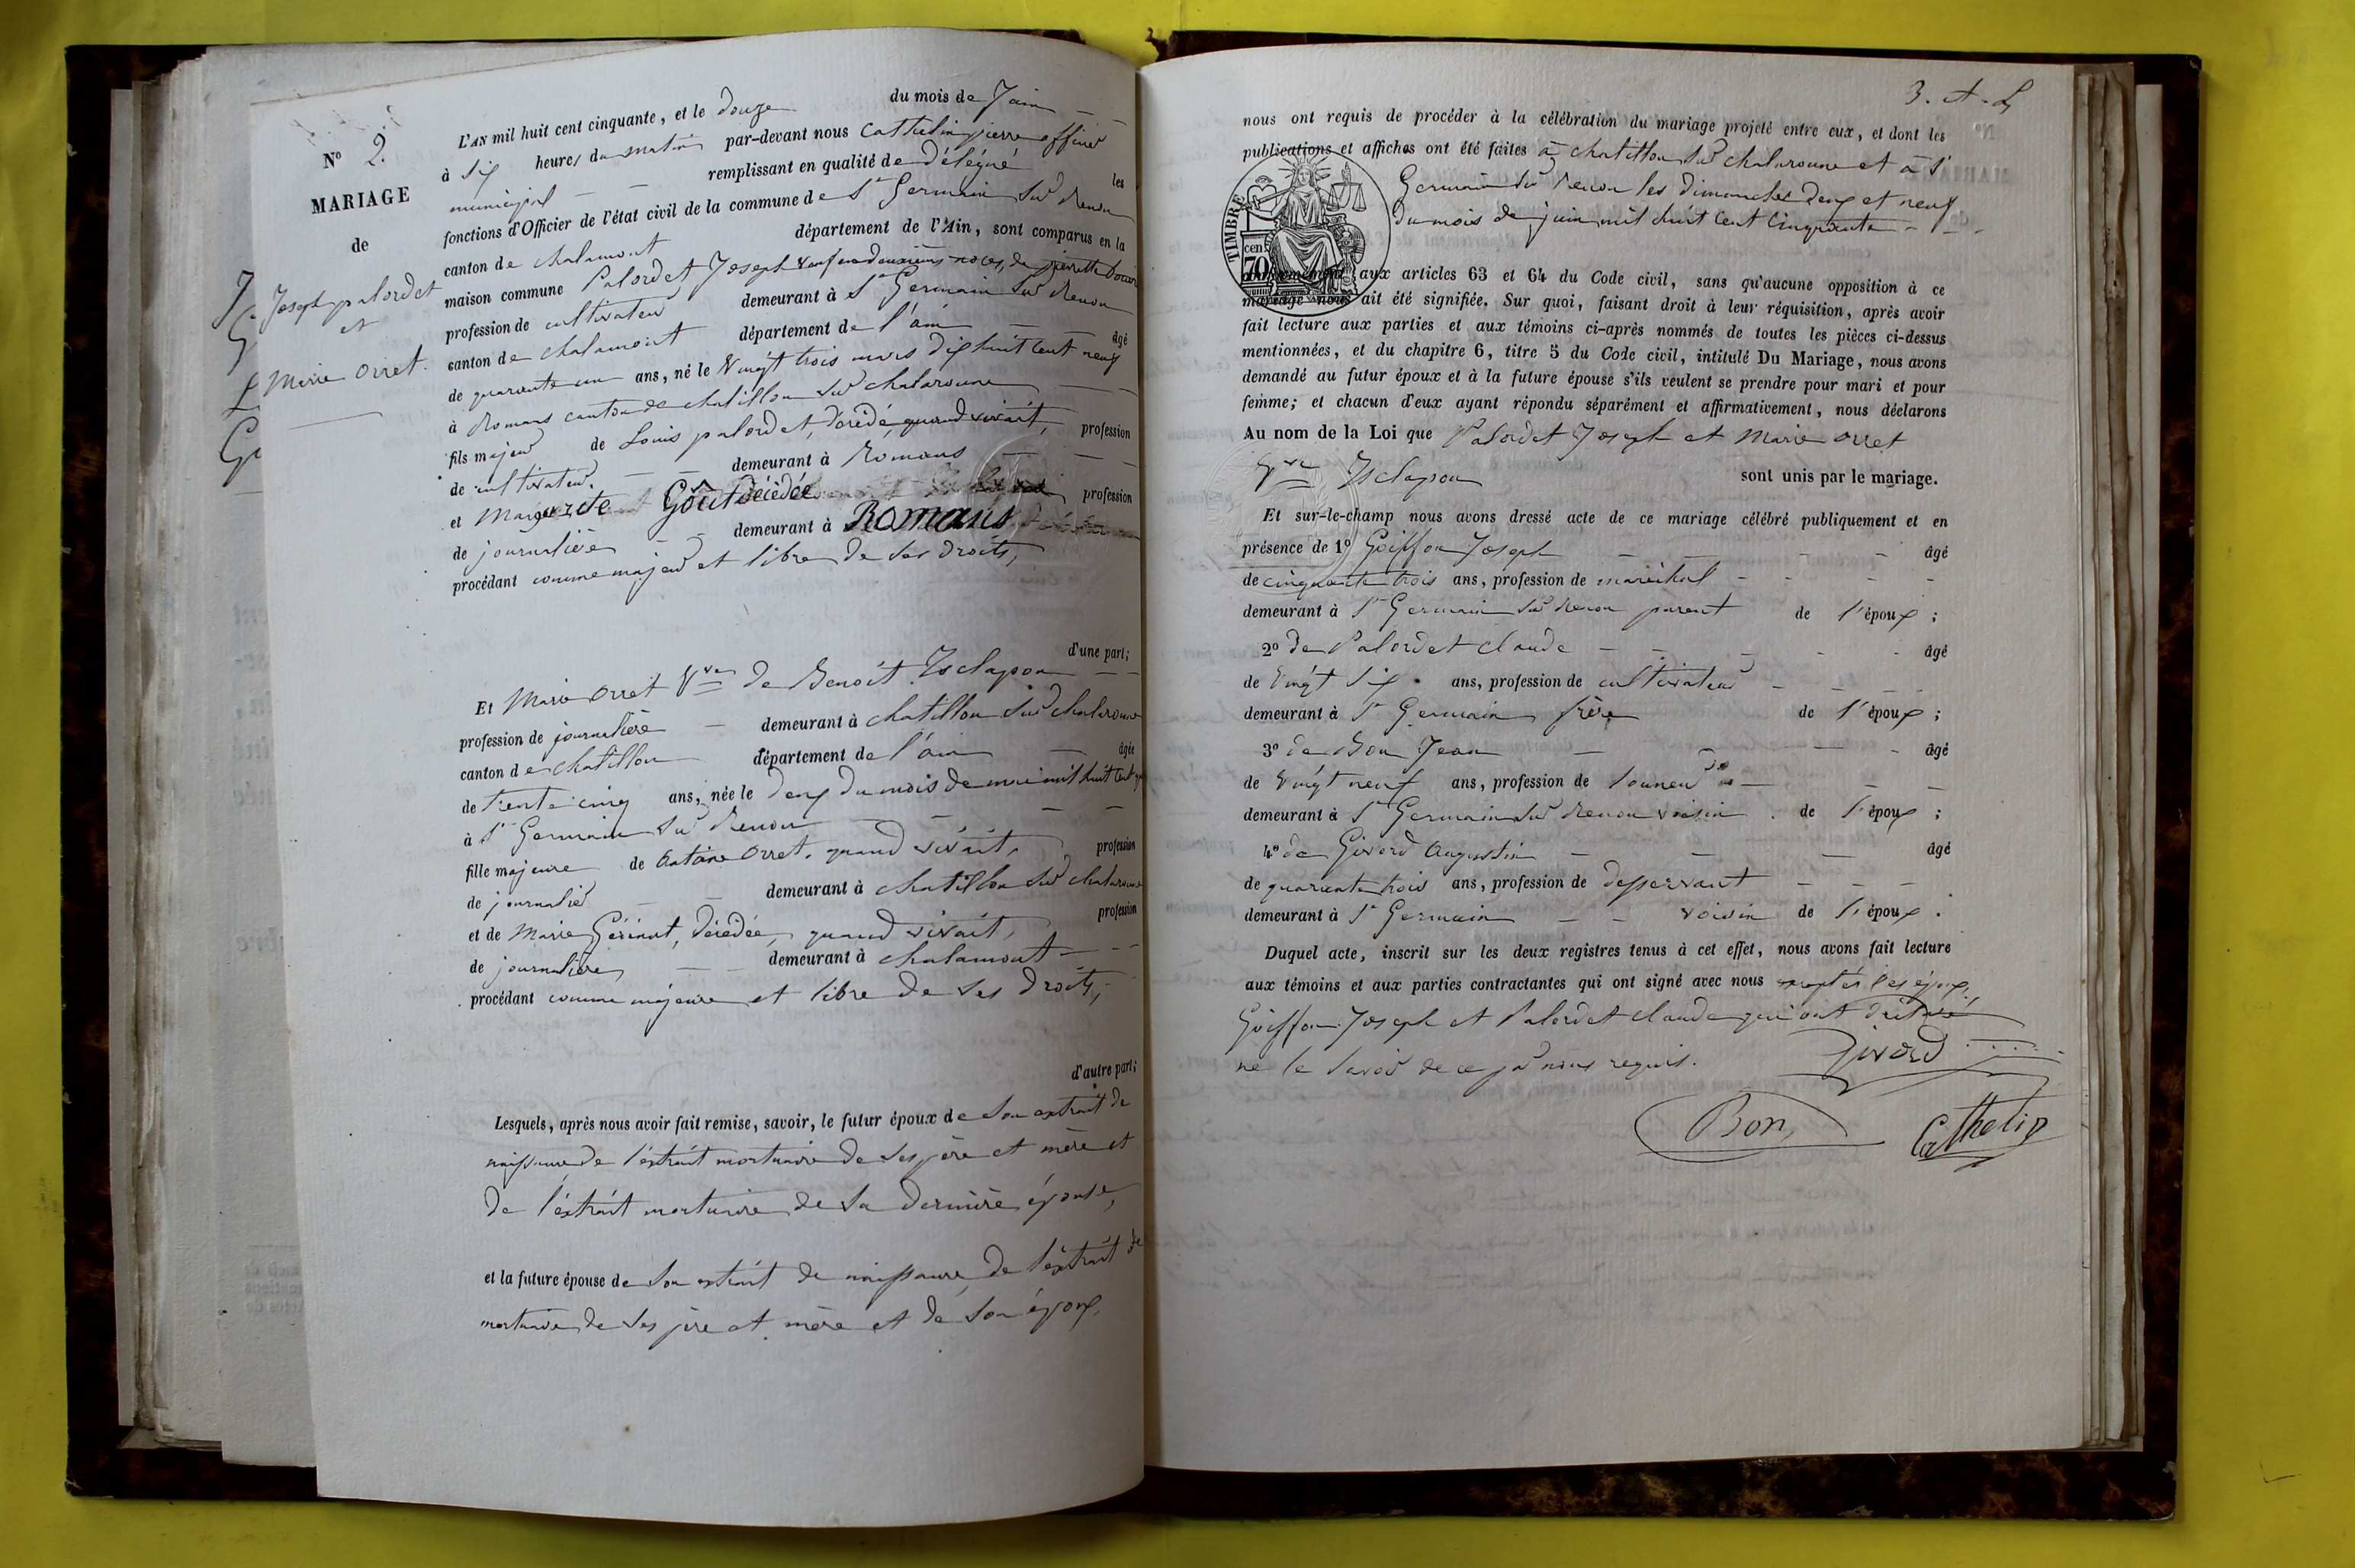 N° 2.
MARIAGE
de
Joseph palordet
et
Marie Orret.
L'AN mil huit cent cinquante, et le douze du mois de Juin
à six heures du matin par-devant nous Cathelin pierre officier
municipal remplissant en qualité de délégué les
fonctions d'Officier de l'état civil de la commune de St Germain sur Renon
canton de chalamont département de l'Ain, sont comparus en la
maison commune Palordet Joseph veuf en deuxièmes noces, de pierrette
profession de cultivateur demeurant à St Germain sur Renon
canton de chalamont département de l'ain âgé
de quarante un ans, né le vingt trois mars dix huit cent neuf
à Romans canton de chatillon sur chalaronne
fils majeur de Louis palordet, décédé, quand vivait, profession
de cultivateur. demeurant à Romans
et Marguerite Goût décédée profession
de journalière demeurant à Romans
procédant comme majeur et libre de ses droits,
d'une part;
Et Marie Orret Vve de Benoît Isclapon
profession de journalière demeurant à chatillon sur chalaronne
canton de chatillon département de l'ain âgée
de trente cinq ans, née le deux du mois de mai mil huit cent
à St Germain sur Renon
fille majeure de Antoine Orret, quand vivait, profession
de journalier demeurant à chatillon sur chalaronne
et de Marie Gérinot, décédée, quand vivait, profession
de journalière demeurant à chalamont
procédant comme majeure et libre de ses droits,
d'autre part;
Lesquels, après nous avoir fait remise, savoir, le futur époux de son extrait de
naissance de l'extrait mortuaire de ses père et mère et
de l'extrait mortuaire de sa dernière épouse,
et la future épouse de son extrait de naissance, de l'extrait de
mortuaire de ses père et mère et de son époux.
3.
nous ont requis de procéder à la célébration du mariage projeté entre eux, et dont les
publications et affiches ont été faites à chatillon sur chalaronne et à St
Germain sur Renon les dimanches deux et neuf
du mois de juin mil huit cent cinquante
TIMBRE
70 cen
conformément aux articles 63 et 64 du Code civil, sans qu'aucune opposition à ce
mariage nous ait été signifiée. Sur quoi, faisant droit à leur réquisition, après avoir
fait lecture aux parties et aux témoins ci-après nommés de toutes les pièces ci-dessus
mentionnées, et du chapitre 6, titre 5 du Code civil, intitulé Du Mariage, nous avons
demandé au futur époux et à la future épouse s'ils veulent se prendre pour mari et pour
femme; et chacun d'eux ayant répondu séparément et affirmativement, nous déclarons
Au nom de la Loi que Palordet Joseph et Marie Orret
Vve Isclapon sont unis par le mariage.
Et sur-le-champ nous avons dressé acte de ce mariage célébré publiquement et en
présence de 1° Goiffon Joseph âgé
de cinquante trois ans, profession de maréchal
demeurant à St Germain sur Renon parent de l'époux;
2° de Palordet claude âgé
de vingt six ans, profession de cultivateur
demeurant à St Germain frère de l'époux;
3° de Bon Jean âgé
de vingt neuf ans, profession de
demeurant à St Germain sur Renon voisin de l'époux;
4° de Givord Augustin âgé
de quarante trois ans, profession de desservant
demeurant à St Germain voisin de l'époux.
Duquel acte, inscrit sur les deux registres tenus à cet effet, nous avons fait lecture
aux témoins et aux parties contractantes qui ont signé avec nous exceptés les époux,
Goiffon Joseph et Palordet claude qui ont déclaré
ne le savoir de ce par nous requis.
Givord
Bon,
Cathelin